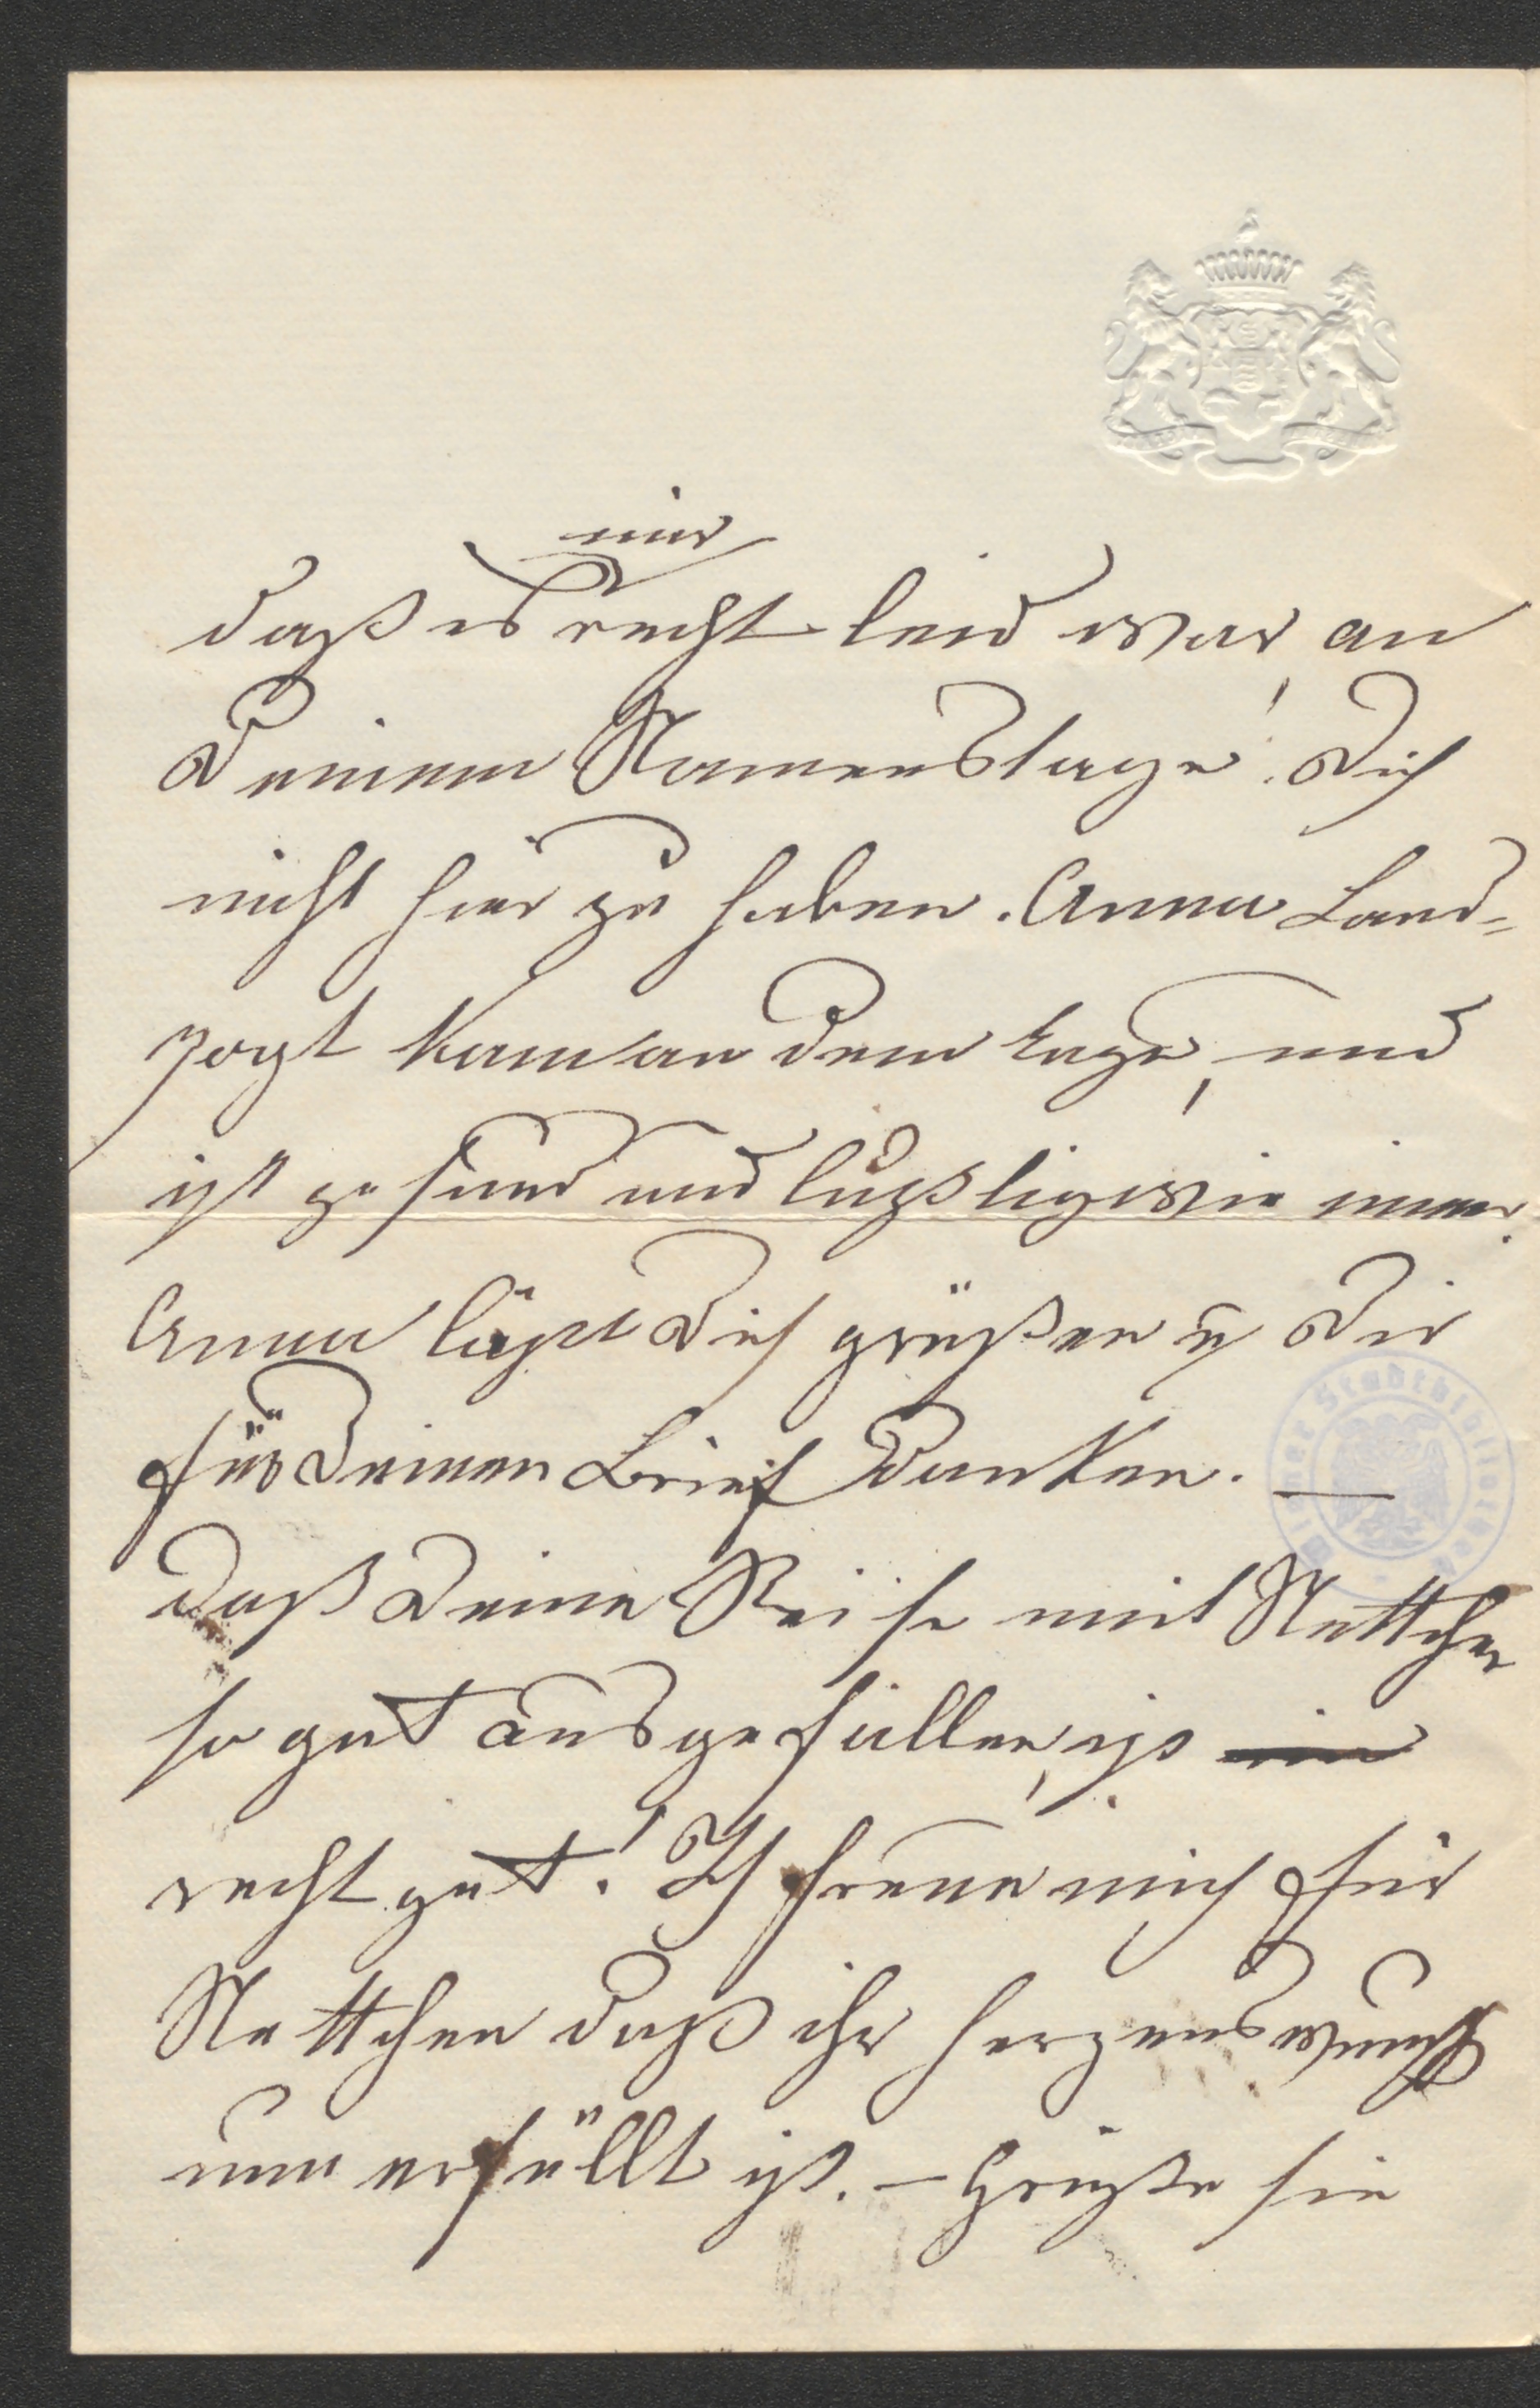 mir
daß es recht leid war, an
Deinem Namenstage! Dich
nicht hier zu haben. Anna Land-
vogt kam an dem Tage, und
ist gesund und lustig wie immer.
Anna läßt Dich grüßen u Dir
für Deinen Brief danken. —
Daß Deine Reise mit Nettchen
so gut ausgefallen, ist
recht gut! Ich freue mich für
Nettchen daß ihr Herzenswunsch
nun erfüllt ist. – Grüße sie
Wiener Stadtbibliothek